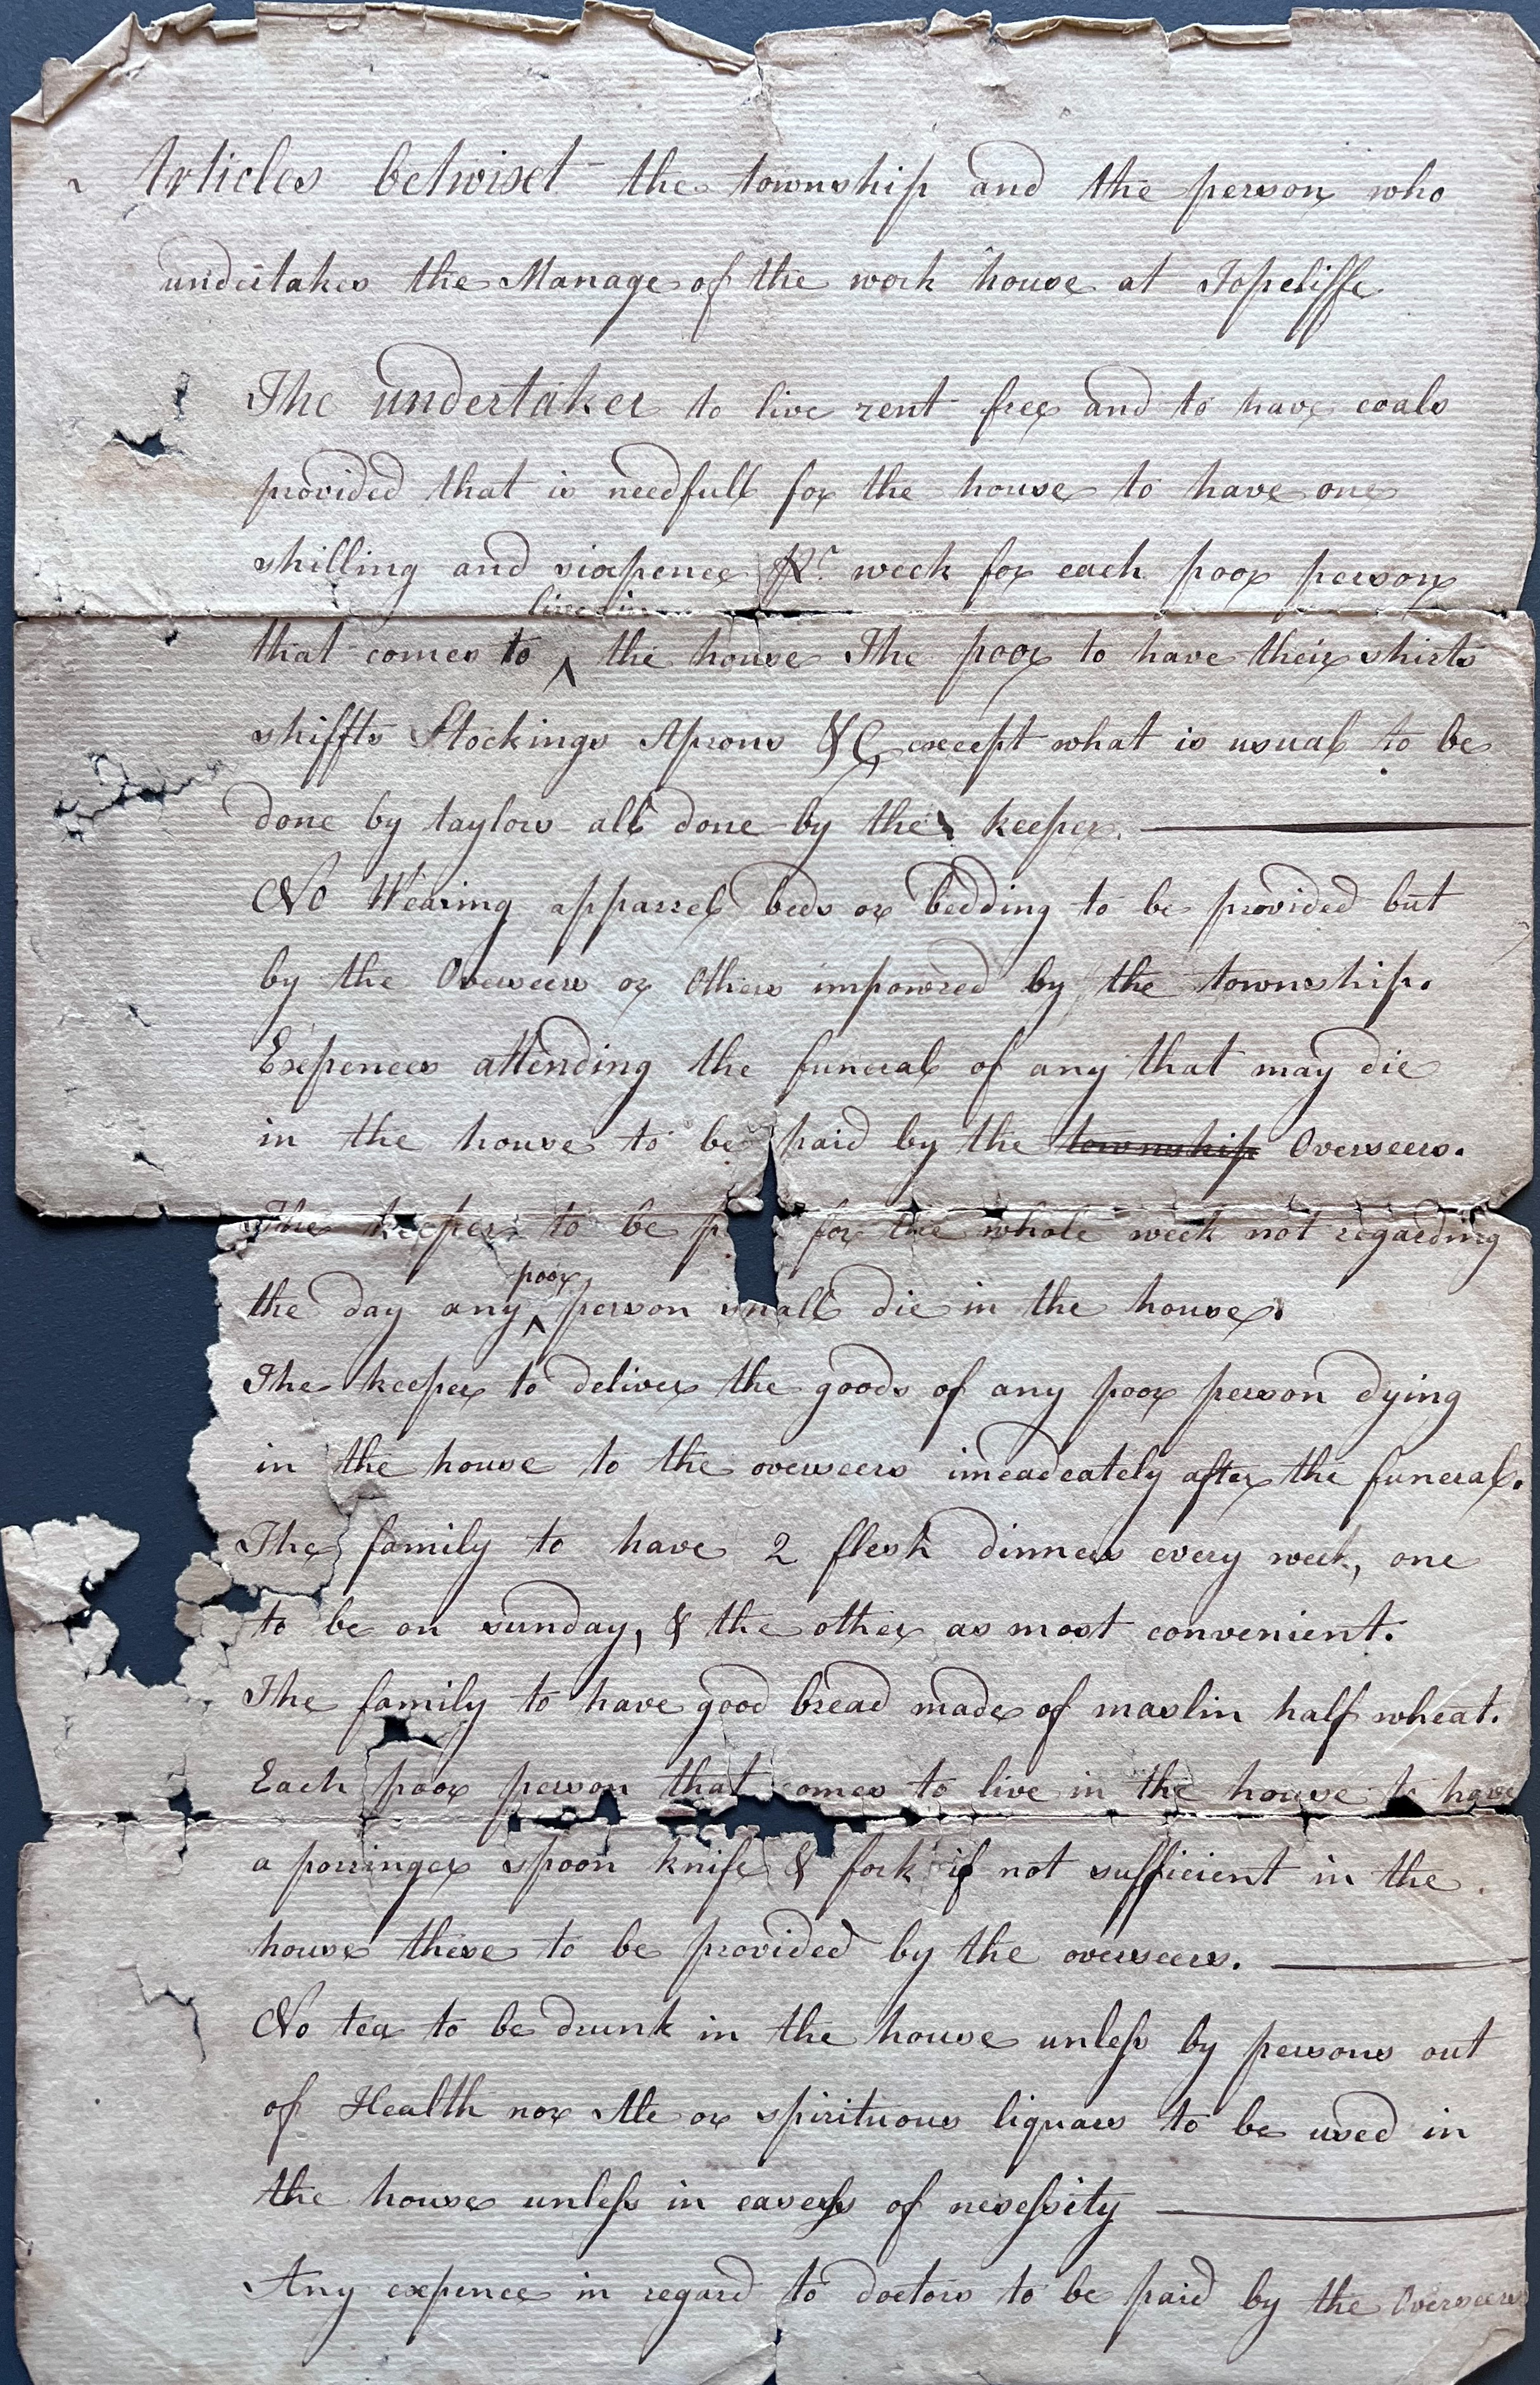 Articles betwixt the township and the person who
undertakes the Manage of the work house at Topcliffe
The undertaker to live rent free and to have coals
provided that is needfull for the house to have one
shilling and sixpence Pr. week for each poor person
live in
that comes to ^ the house The poor to have their shirts
shiffts Stockings Aprons &C, except what is usual to be
done by taylors all done by the keeper.
No Wearing apparrel beds or bedding to be provided but
by the Overseers or Others impowred by the township.
Expences attending the funeral of any that may die
in the house to be paid by the township Overseers.
The keeper to be p for the whole week not regarding
poor
the day any ^ person shall die in the house.
The keeper to deliver the goods of any poor person dying
in the house to the overseers imeadeately after the funeral.
The family to have 2 flesh dinners every week, one
to be on sunday, & the other as most convenient.
The family to have good bread made of maslin half wheat.
Each poor person that comes to live in the house to have
a porringer spoon knife & fork if not sufficient in the
house these to be provided by the overseers.
No tea to be drunk in the house unless by persons out
of Health nor Ale or spirituous liquars to be used in
the house unless in casess of nesessity
Any expence in regard to doctors to be paid by the Overseers